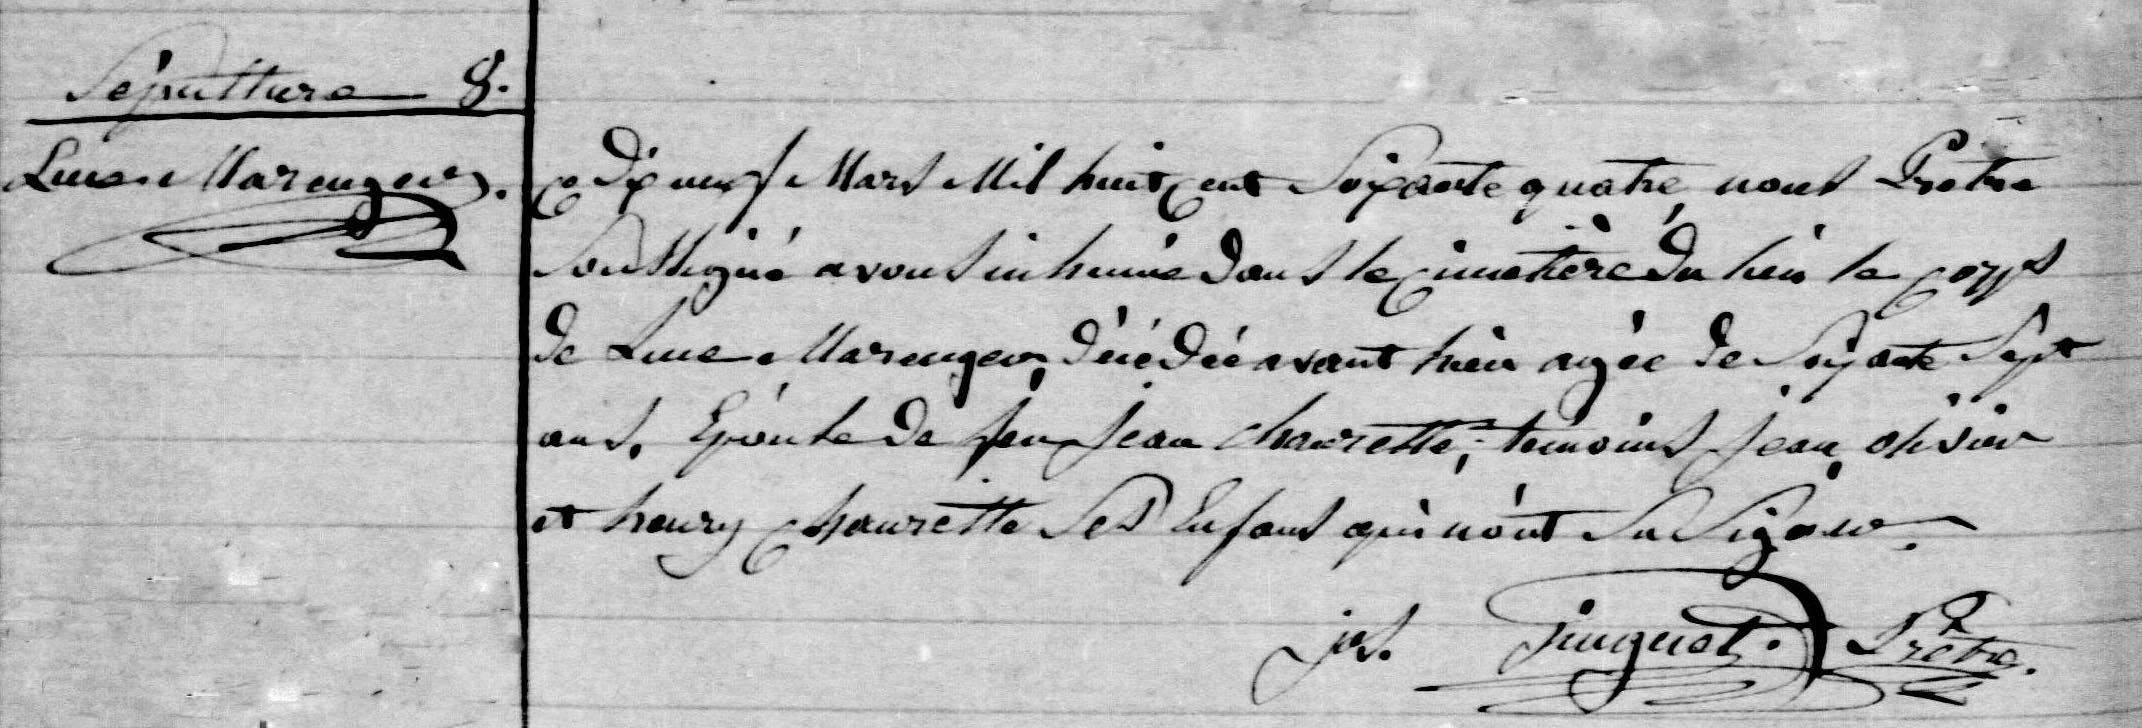 Sépulture 8.
Luce Marenger.
Ce dix neuf Mars Mil huit Cent Soixante quatre nous Prêtre
Soussigné avons inhumé dans le Cimetière du lieu le Corps
de Luce Marenger, décédée avant hier agée de Soixante Sept
ans. Epouse de feu Jean Chaurette; temoins Jean, olivier
et henry Chaurette Ses Enfans qui n'ont Su Signer.
jos. Prêtre.